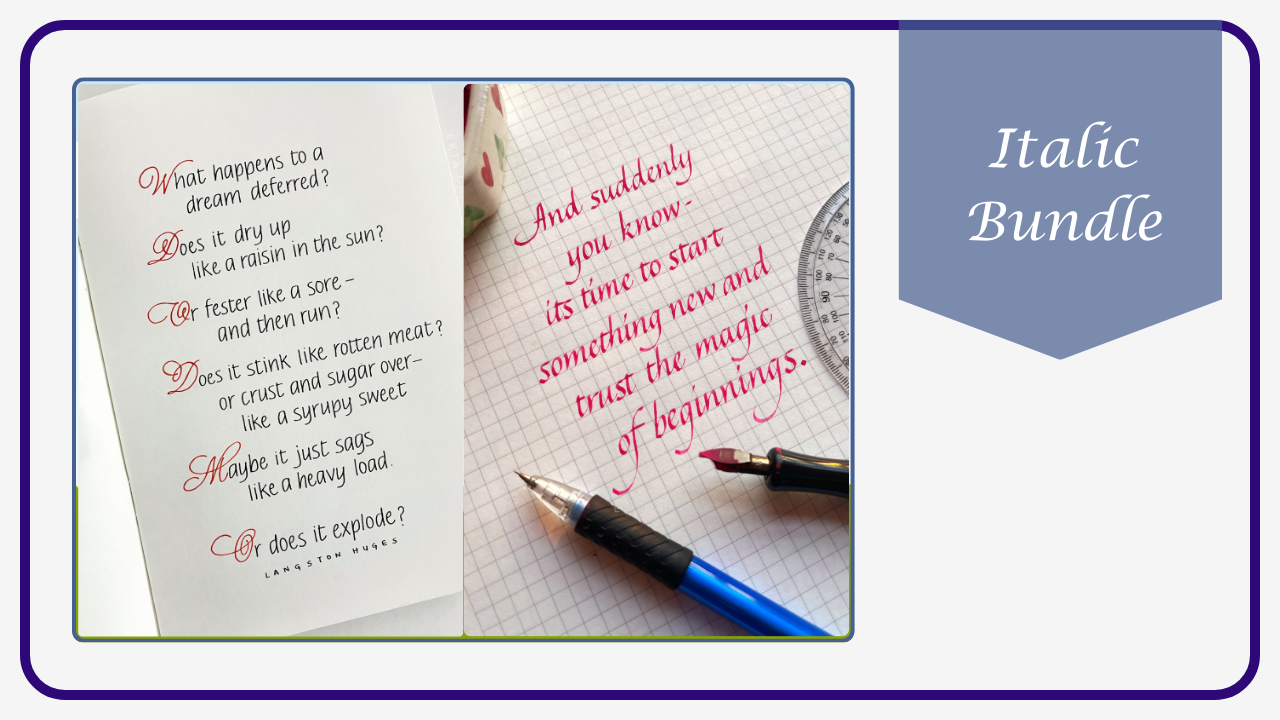 What happens to a
dream deferred?
Does it dry up
like a raisin in the sun?
Or fester like a sore –
and then run?
Does it stink like rotten meat?
or crust and sugar over –
like a syrupy sweet
Maybe it just sags
like a heavy load.
Or does it explode?
LANGSTON HUGES
And suddenly
you know -
its time to start
something new and
trust the magic
of beginnings.
Italic
Bundle